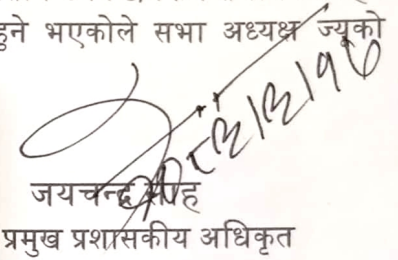 हुने भएकोले सभा अध्यक्ष ज्यूको
जयचन्द्र साह
प्रमुख प्रशासकीय अधिकृत